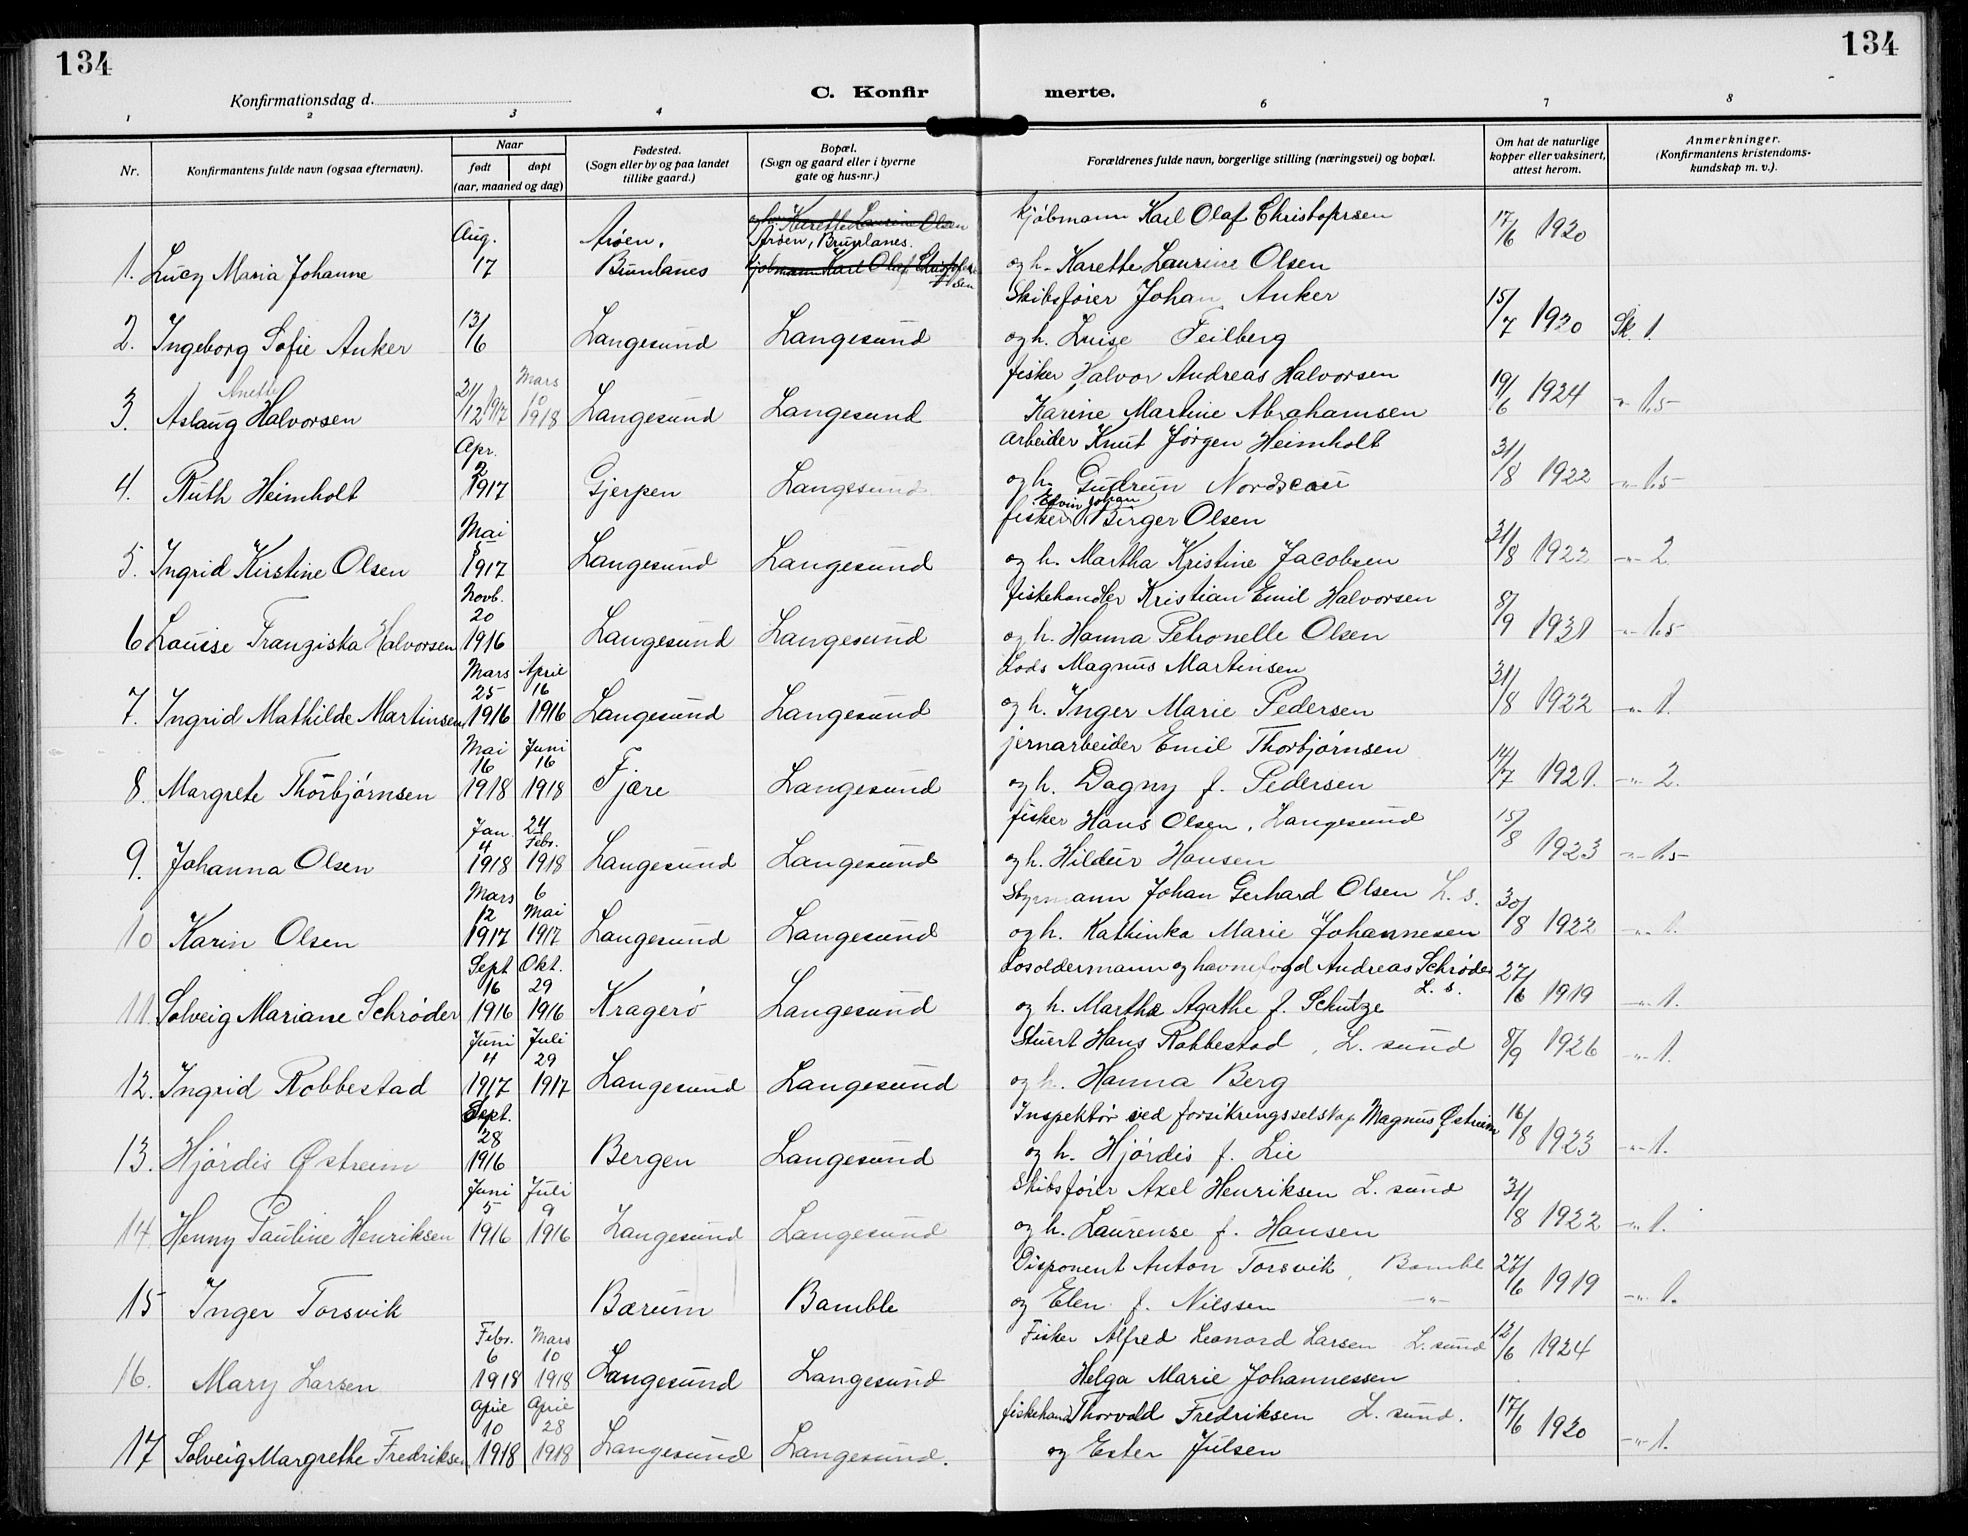 134
134
Konfirmationsdag d.
C. Konfir merte.
1 2 3 4 6 7 8
Nr.
Konfirmantens fulde navn (ogsaa efternavn).
Naar
født døpt
(aar, maaned og dag)
Fødested.
(Sogn eller by og paa landet
tillike gaard.)
Bopæl.
(Sogn og gaard eller i byerne
gate og hus-nr.)
Forældrenes fulde navn, borgerlige stilling (næringsvei) og bopæl.
Om hat de naturlige
kopper eller vaksinert,
attest herom.
Anmerkninger.
(Konfirmantens kristendoms-
kundskap m. v.).
Aug. Arøen, og h. Karette Laurine Olsen kjøbmann Karl Olaf Christophersen 17/6 1920
Arøen, Brunlanes.
1. Lucy Maria Johanne 17 Brunlanes kjøbmann Karl Olaf Christophersen og h. Karette Laurine Olsen
13/6 Skibsfører Johan Anker 15/7 1920 Sk. 1
2. Ingeborg Sofie Anker Langesund Langesund og h. Luise Feilberg
Anette 21/12 1917 Mars 10 1918 fisker Halvor Andreas Halvorsen 19/6 1924 -"- 1,5
3. Aslaug Halvorsen Langesund Langesund Karine Martine Abrahamsen
Apr. 2 arbeider Knut Jørgen Heimholt 31/8 1922 -"- 1,5
4. Ruth Heimholt 1917 Gjerpen Langesund og h. Gudrun
Mai 5 Edvin Johan
fisker Birger Olsen 31/8 1922 -"- 2
5. Ingrid Kirstine Olsen 1917 Langesund Langesund og h. Martha Kristine Jacobsen
Novb. 20 fiskehandler Kristian Emil Halvorsen 8/9 1921 -"- 1,5
6 Louise Franziska Halvorsen 1916 Langesund Langesund og h. Hanna Petronelle Olsen
Mars 25 April 16 Lods Magnus Martinsen 31/8 1922 -"- 1.
7. Ingrid Mathilde Martinsen 1916 1916 Langesund Langesund og h. Inger Marie Pedersen
Mai 16 Juni 16 jernarbeider Emil Thorbjørnsen 14/7 1921. -"- 2.
8. Margrete Thorbjørnsen 1918 1918 Fjære Langesund og h. Dagny f. Pedersen
Jan. 4 24 Febr. fisker Hans Olsen, Langesund 15/8 1923 -"- 1,5
9. Johanna Olsen 1918 1918 Langesund Langesund og h. Hildur Hansen
Mars 12 6 Mai Styrmann Johan Gerhard Olsen L. s. 30/8 1922 -"- 1.
10 Karin Olsen 1917 1917 Langesund Langesund og h. Kathinka Marie Johannesen
Sept 16 Okt. 29 Losoldermann og havnefogd Andreas Schrøder L. s. 27/6 1919 -"- 1.
11. Solveig Mariane Schrøder 1916 1916 Kragerö Langesund og h. Martha Agathe f. Schutze
Juni 4 Juli 29 Stuert Hans Robbestad, L. sund 8/9 1926 -"- 1.
12. Ingrid Robbestad 1917 1917 Langesund Langesund og h. Hanna Berg
Sept. 28 Inspektør ved forsikringsselskap Magnus Østreim 16/8 1923 -"- 1.
13. Hjördis Østreim 1916 Bergen Langesund og h. Hjördis f. Lie
Juni 5 Juli 9 Skibsfører Axel Henriksen L. sund 31/8 1922 -"- 1.
14. Henny Pauline Henriksen 1916 1916 Langesund Langesund og h. Laurense f. Hansen
Disponent Anton Torsvik, Bamble 27/6 1919 -"- 1.
15 Inger Torsvik Bærum Bamble og Elen f. Nilssen -"-
Febr. 6 Mars 10 Fisker Alfred Leonard Larsen L. sund 12/6 1924
16. Mary Larsen 1918 1918 Langesund Langesund Helga Marie Johannessen
April 10 April 28 fiskehand. Thorvald Fredriksen L. sund. 17/6 1920 -"- 1.
17 Solveig Margrethe Fredriksen 1918 1918 Langesund Langesund. og Ester Julsen